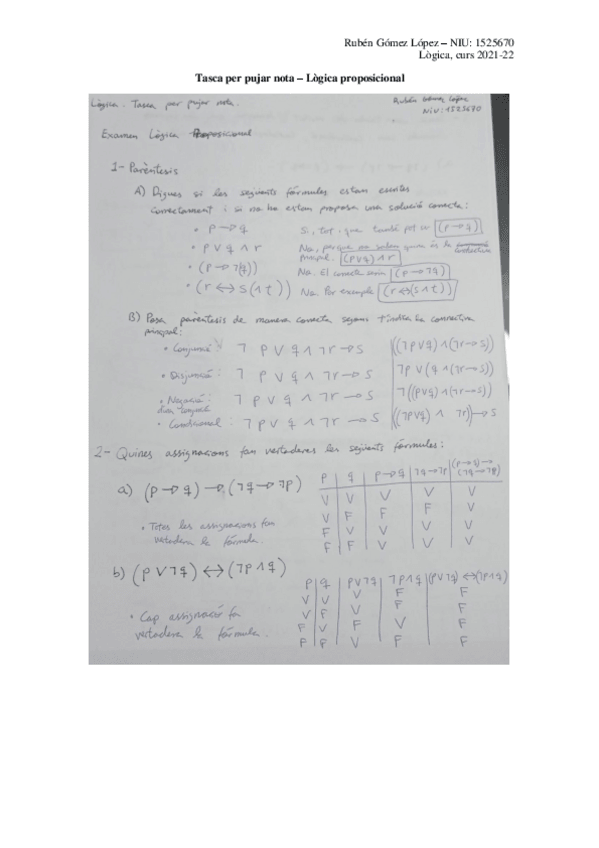 Rubén Gómez López – NIU: 1525670
Lògica, curs 2021-22
Tasca per pujar nota – Lògica proposicional
Lògica. Tasca per pujar nota.
Rubén Gómez López
NIU: 1525670
Examen Lògica Proposicional
1- Parèntesis
A) Digues si les següents fórmules estan escrites
correctament i si no ho estan proposa una solució correcta:
• p → q Si, tot i que també pot ser (p → q)
• p ∨ q ∧ r No, perque no sabem quina és la connectiva
principal. (p∨q) ∧ r
• (p → ¬(q)) No. El correcte seria (p → ¬q)
• (r ↔ s(∧ t)) No. Per exemple (r ↔ (s ∧ t))
B) Posa parèntesis de manera correcta segons t'indica la connectiva
principal:
• Conjunció: ¬ p ∨ q ∧ ¬r → s ((¬p∨q) ∧ (¬r → s))
• Disjunció: ¬ p ∨ q ∧ ¬r → s ¬p ∨ (q ∧ (¬r → s))
• Negació: ¬ p ∨ q ∧ ¬r → s ¬((p∨q) ∧ (¬r → s))
• Condicional: ¬ p ∨ q ∧ ¬r → s ((¬p∨q) ∧ ¬r) → s
2- Quines assignacions fan vertaderes les següents fórmules:
a) (p → q) → (¬q → ¬p)
• Totes les assignacions fan
vertadera la fórmula.
p q p → q ¬q → ¬p (p → q) → (¬q → ¬p)
V V V V V
V F F F V
F V V V V
F F V V V
b) (p ∨ ¬q) ↔ (¬p ∧ q)
• Cap assignació fa
vertadera la fórmula.
p q p∨¬q ¬p∧q (p∨¬q) ↔ (¬p∧q)
V V V F F
V F V F F
F V F V F
F F V F F